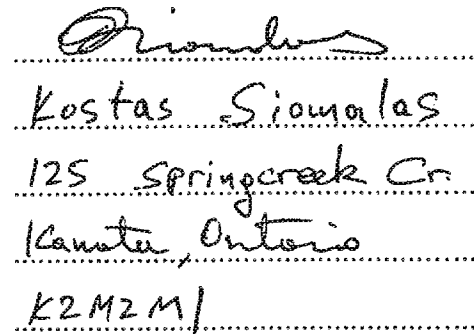 Kostas Siomalas
125 Springcreek Cr.
Kanata, Ontario
K2M2M1